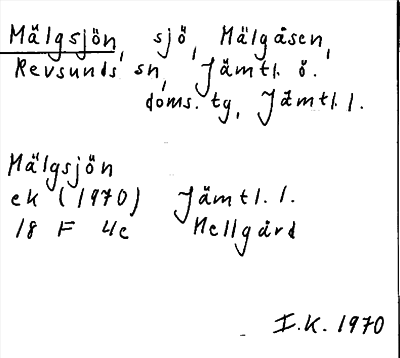 Mälgsjön, sjö, Mälgåsen,
Revsunds sn, Jämtl. ö.
doms. tg, Jämtl. l.
Mälgsjön
ek (1970) Jämtl. l.
18 F 4e Hellgård
I.K. 1970